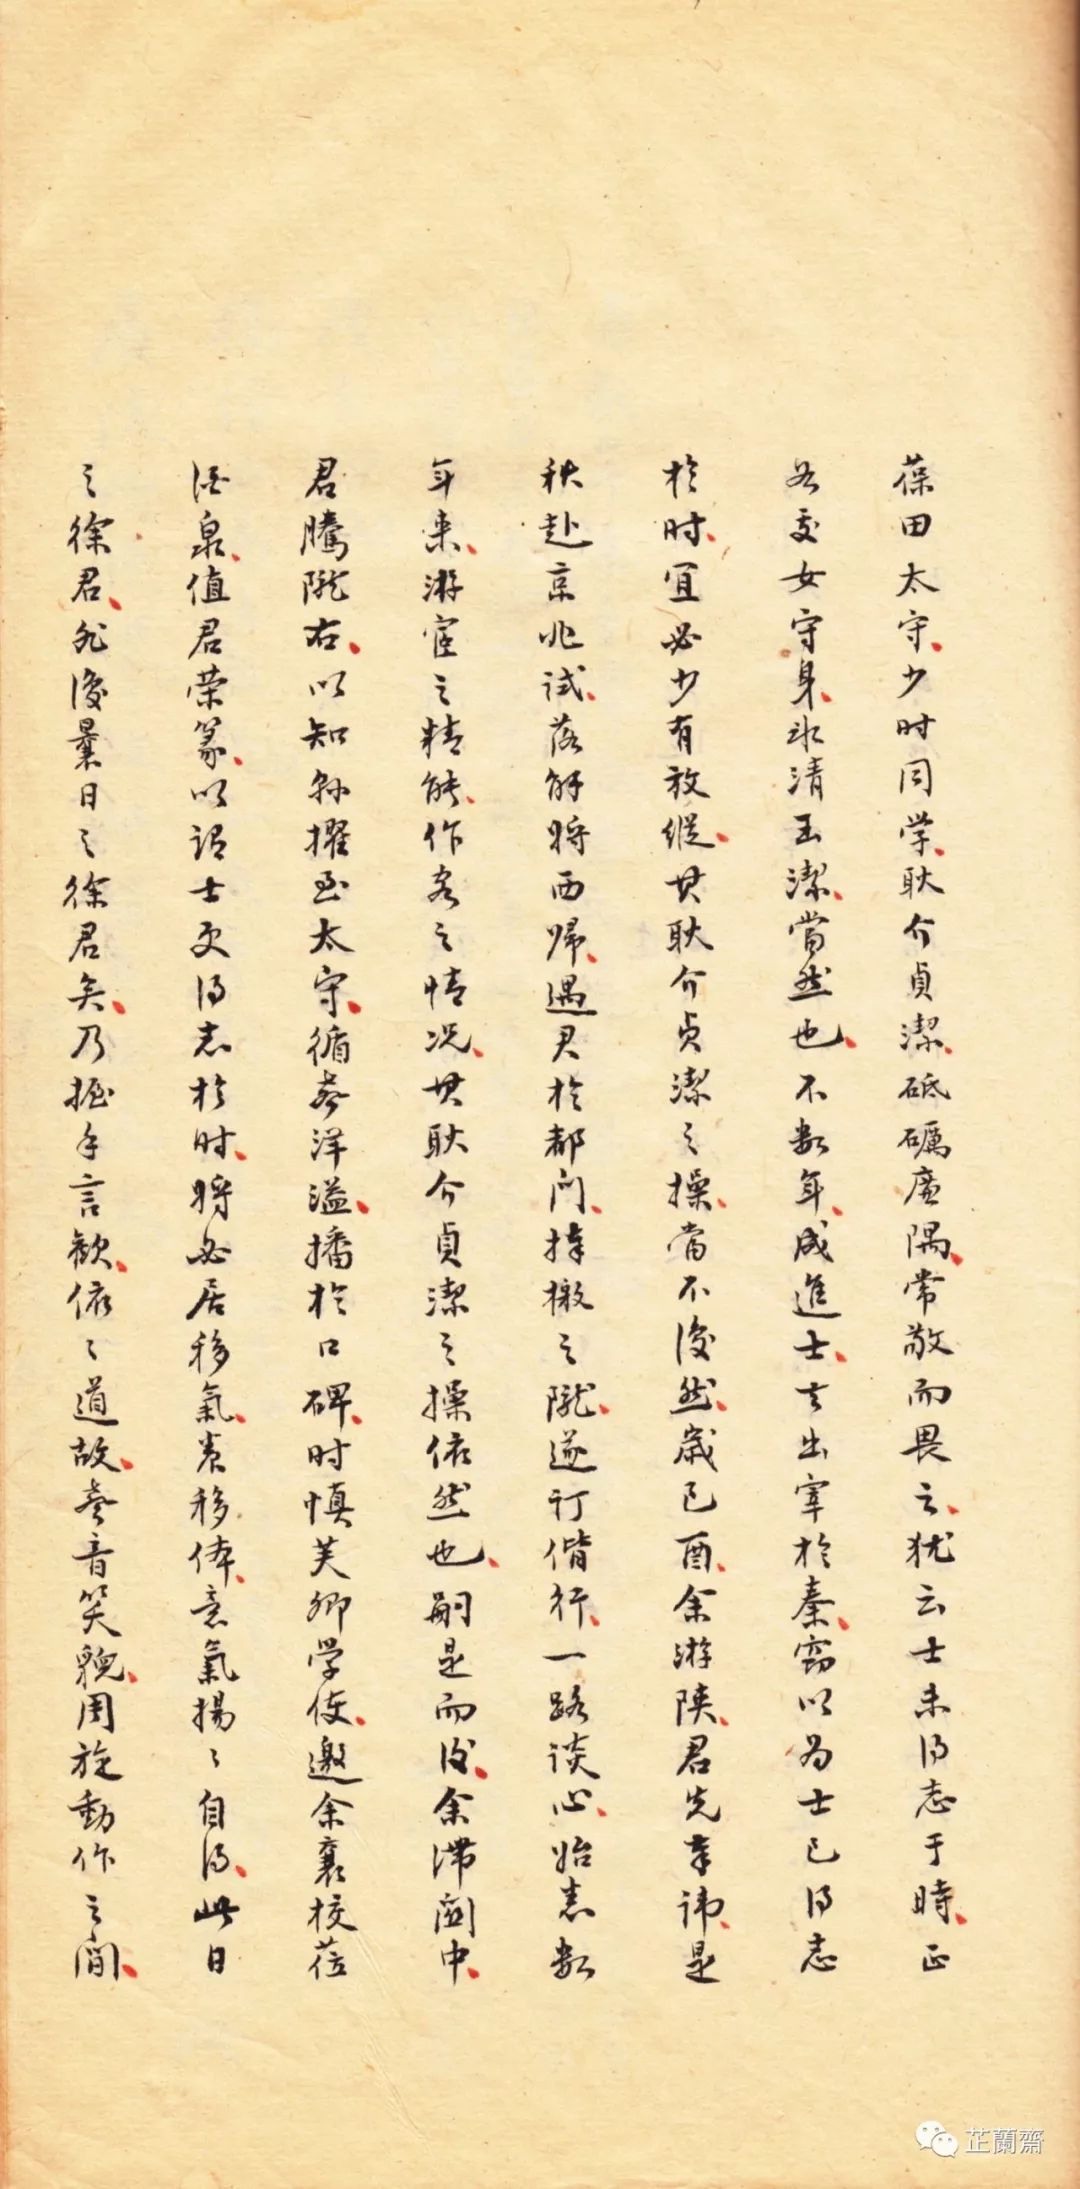 葆田太守、少时同学、耿介貞潔、砥礪廉隅、常敬而畏之、犹云士未得志于時、正
如處女守身、冰清玉潔、當然也、不數年、成進士、去出宰於秦、窃以为士已得志
於时、宜必少有放縱、其耿介貞潔之操、當不復然、歲己酉、余游陝、君先奉諱、是
秋赴京兆試、落解將西歸、遇君於都门、捧檄之隴、遂订偕行、一路谈心、始悉數
年来、游宦之精能、作客之情况、其耿介貞潔之操依然也、嗣是而後、余滞関中、
君騰隴右、以知縣擢至太守、循聲洋溢、播於口碑、时慎芙卿学使、邀余襄校莅
酒泉、值君荣篆、以谓士更得志於时、將必居移氣、养移体、意氣揚〻自得、此日
之徐君、非復曩日之徐君矣、乃握手言歡、依〻道故、聲音笑貌、周旋動作之間、
芷蘭齋